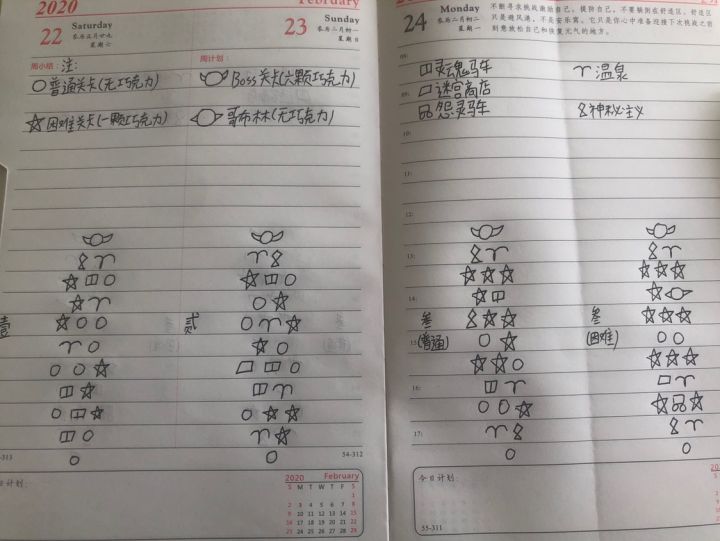 2020
February
22 Saturday
农历正月廿九
星期六
23 Sunday
农历二月初一
星期日
周小结：注：
周计划：
普通关卡(无巧克力)
Boss关卡(六颗巧克力)
困难关卡(一颗巧克力)
哥布林(无巧克力)
壹
贰
-313
54-312
日计划：
2020 February
S M T W T F S
1
2 3 4 5 6 7 8
9 10 11 12 13 14 15
16 17 18 19 20 21 22
23 24 25 26 27 28 29
24 Monday
农历二月初二
星期一
不断寻求挑战激励自己。提防自己，不要躺倒在舒适区。舒适区
只是避风港，不是安乐窝。它只是你心中准备迎接下次挑战之前
刻意放松自己和恢复元气的地方。
灵魂马车
温泉
09:
迷宫商店
怨灵马车
神秘主义
10:
11:
12:
13:
14:
叁
叁
15:
(普通)
(困难)
16:
17:
今日计划：
55-311